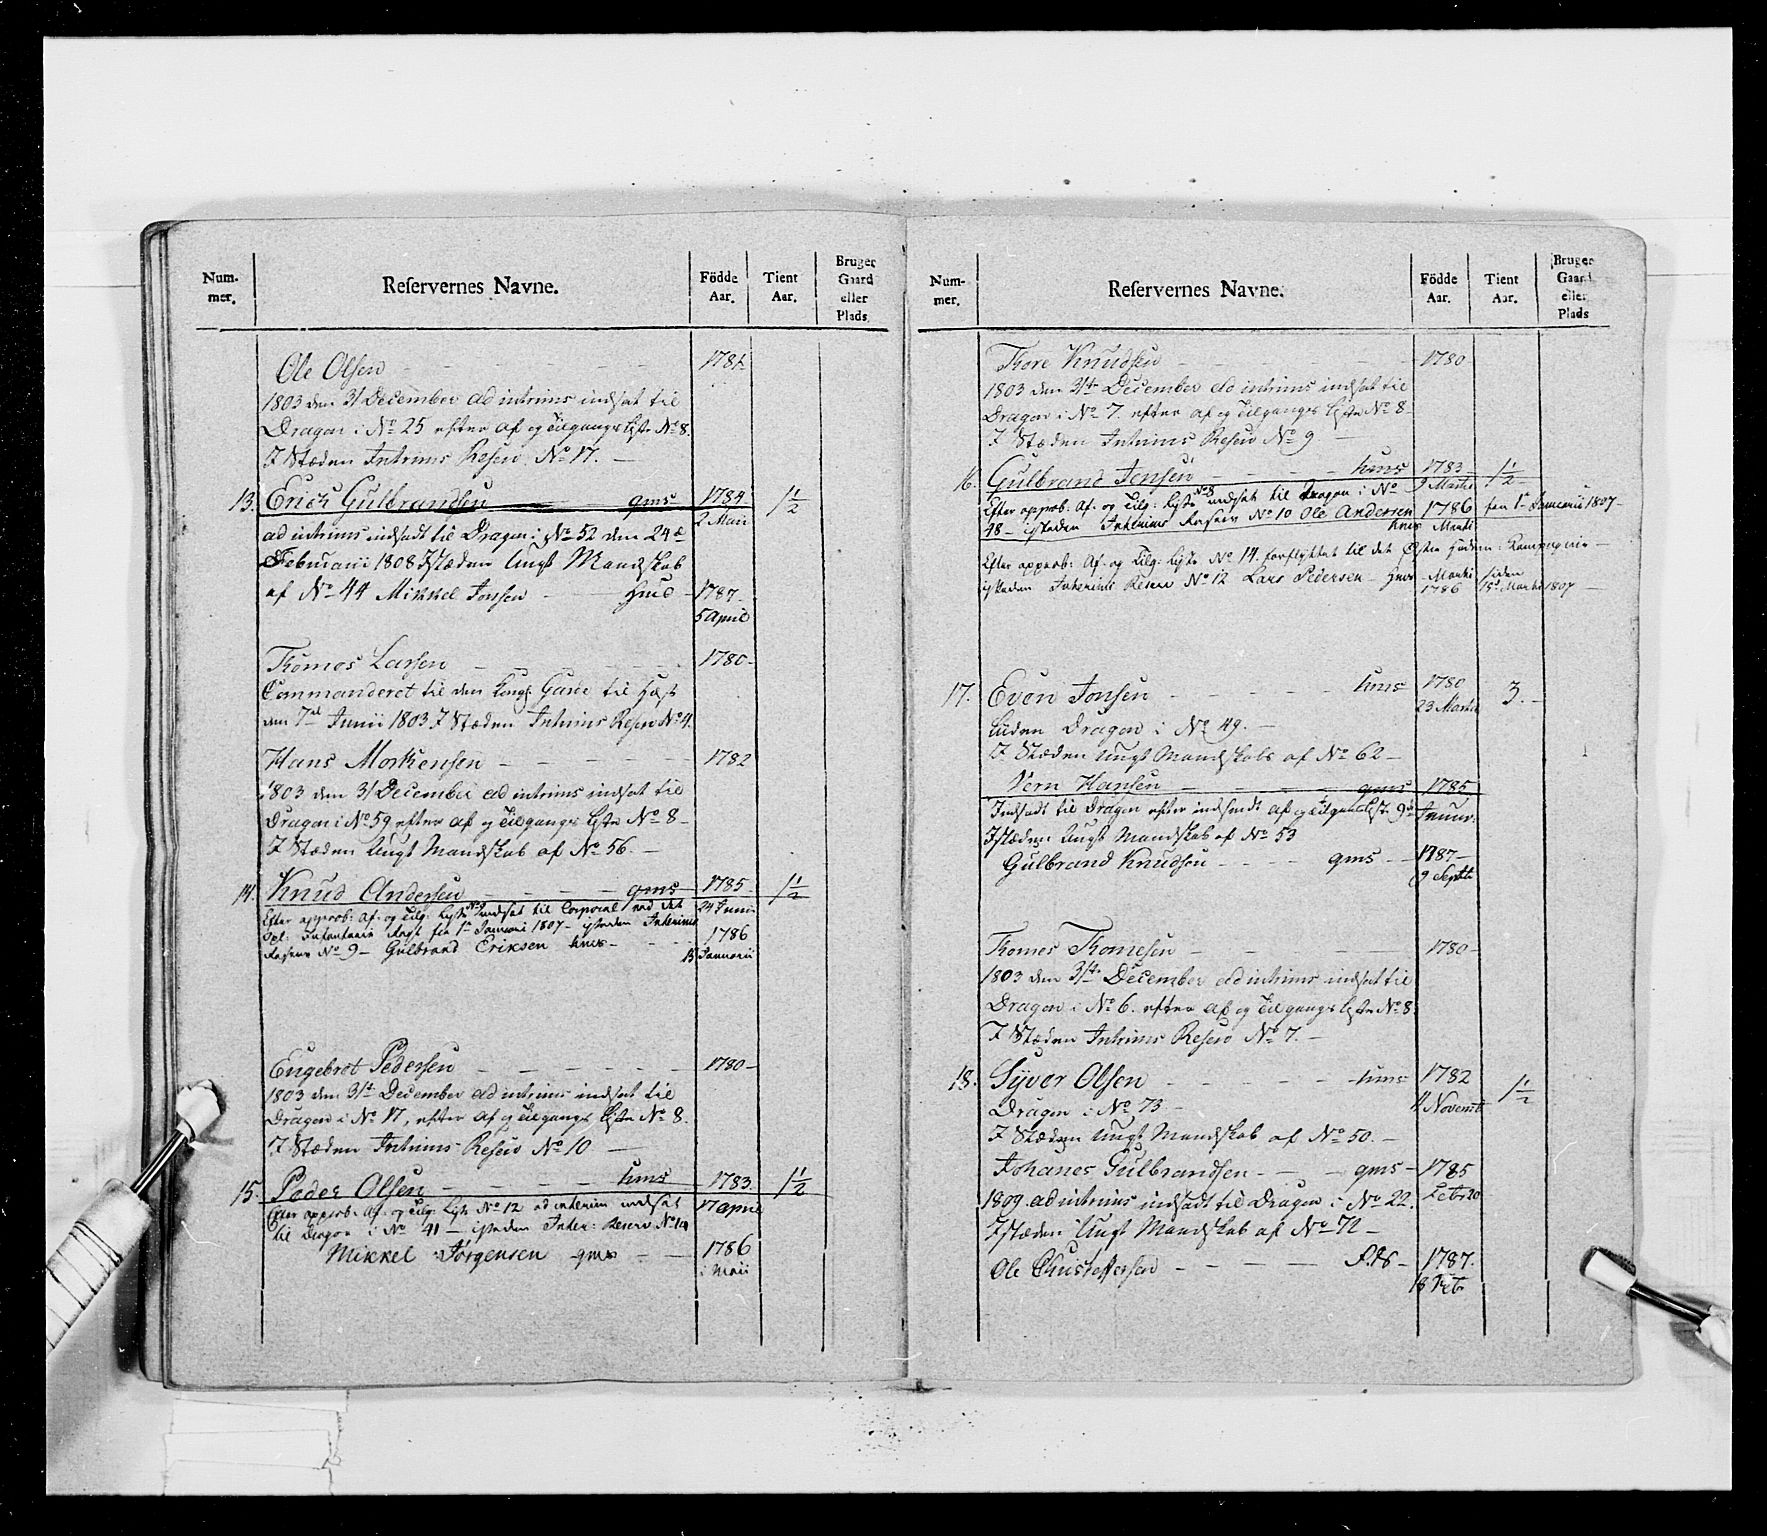 Num-
mer.
Reservernes Navne.
Födde
Aar.
Tient
Aar.
Bruger
Gaard
eller
Plads.
Ole Olsen 1781
1803 den 31 December ad intrims indsat til
Dragon i No 25 efter af og Tilgangs Liste No 8.
I Stæden Intrims Reserv No 17.
13. Erich Gulbrandsen gms 1784 1 1/2
2 Maii
ad intrims indsadt til Dragon i No 52 den 24de
Februarii 1808 I stæden Ungt Mandskab
af No 44 Mikkel Jonsen 1787
5 April
Thomes Larsen 1780
Commanderet til den Kongl: Garde til Hest
den 7de Junii 1803. I Stæden Intrims Reserv No 4.
Hans Mortensen 1782
1803 den 31 December ad intrims indsat til
Dragon i No 59 efter af og Tilgangs Liste No 8
I Stæden Ungt Mandskab af No 56.
14. Knud Andersen gms 1785 1 1/2
Efter approb: Af: og Tilg: Liste No 8 indsat til Corporal ved det 24 Junii
Opl: Infanterie Regt fra 1te Januari 1807 isteden Interims
Reserv No 9 Gulbrand Eriksen 1786
13 Januarii
Engebret Pedersen 1780
1803 den 31te December ad intrims indsat til
Dragon i No 17, efter af og Tilgangs Liste No 8.
I Stæden Intrims Reserv No 10
15. Peder Olsen hms 1783. 1 1/2
Efter approb: Af: og Tilg: Liste No 12 ad interim indsat 17 April
til Dragon i No 41 isteden Inter: Reserv No 10
Mikkel Jørgensen gms 1786
i Maii
Num-
mer.
Reservernes Navne.
Födde
Aar.
Tient
Aar.
Bruger
Gaard
eller
Plads
Thore Knudsen 1780
1803 den 31te December ad intrims indsat til
Dragon i No 7. efter af og Tilgangs Liste No 8
I Stæden Intrims Reserv No 9
16. Gulbrand Jonsen hms 1783 1 1/2
9 Martii
Efter approb: Af: og Tilg: Liste No 8 indsat til Dragon i No
48 isteden Interims Reserv No 10 Ole Andersen 1786 fra 1te Januarii 1807
Martii
Efter approb: Af: og Tilg: Liste No 14. forflyttet til det Compagnie
isteden Interims Reserv No 12 Lars Pedersen Martii siden
1786 15de Martii 1807
17. Even Jonsen hms 1780 3.
23 Martii
Dragon i No 49.
I Stæden Ungt Mandskab af No 62
Hansen gms 1785
Indsadt til Dragon efter indsendt Af og Tilgangsliste 9de
I stæden Ungt Mandskab af No 53
Gulbrand Knudsen gms 1787
9 Septb
Thomes Thomesen 1780
1803 den 31te December ad intrims indsat til
Dragon i No 6. efter af og Tilgangs Liste No 8.
I Stæden Intrims Reserv No 7.
18. Syver Olsen hms 1782 1 1/2
Dragon i No 73. Novemb
I Stæden Ungt Mandskab af No 50.
Johanes Gulbrandsen gms 1785
1809 ad intrims indsadt til Dragon i No 22. Febr 20
I stæden Ungt Mandskab af No 72
Ole Christoffersen 1787.
18 Feb